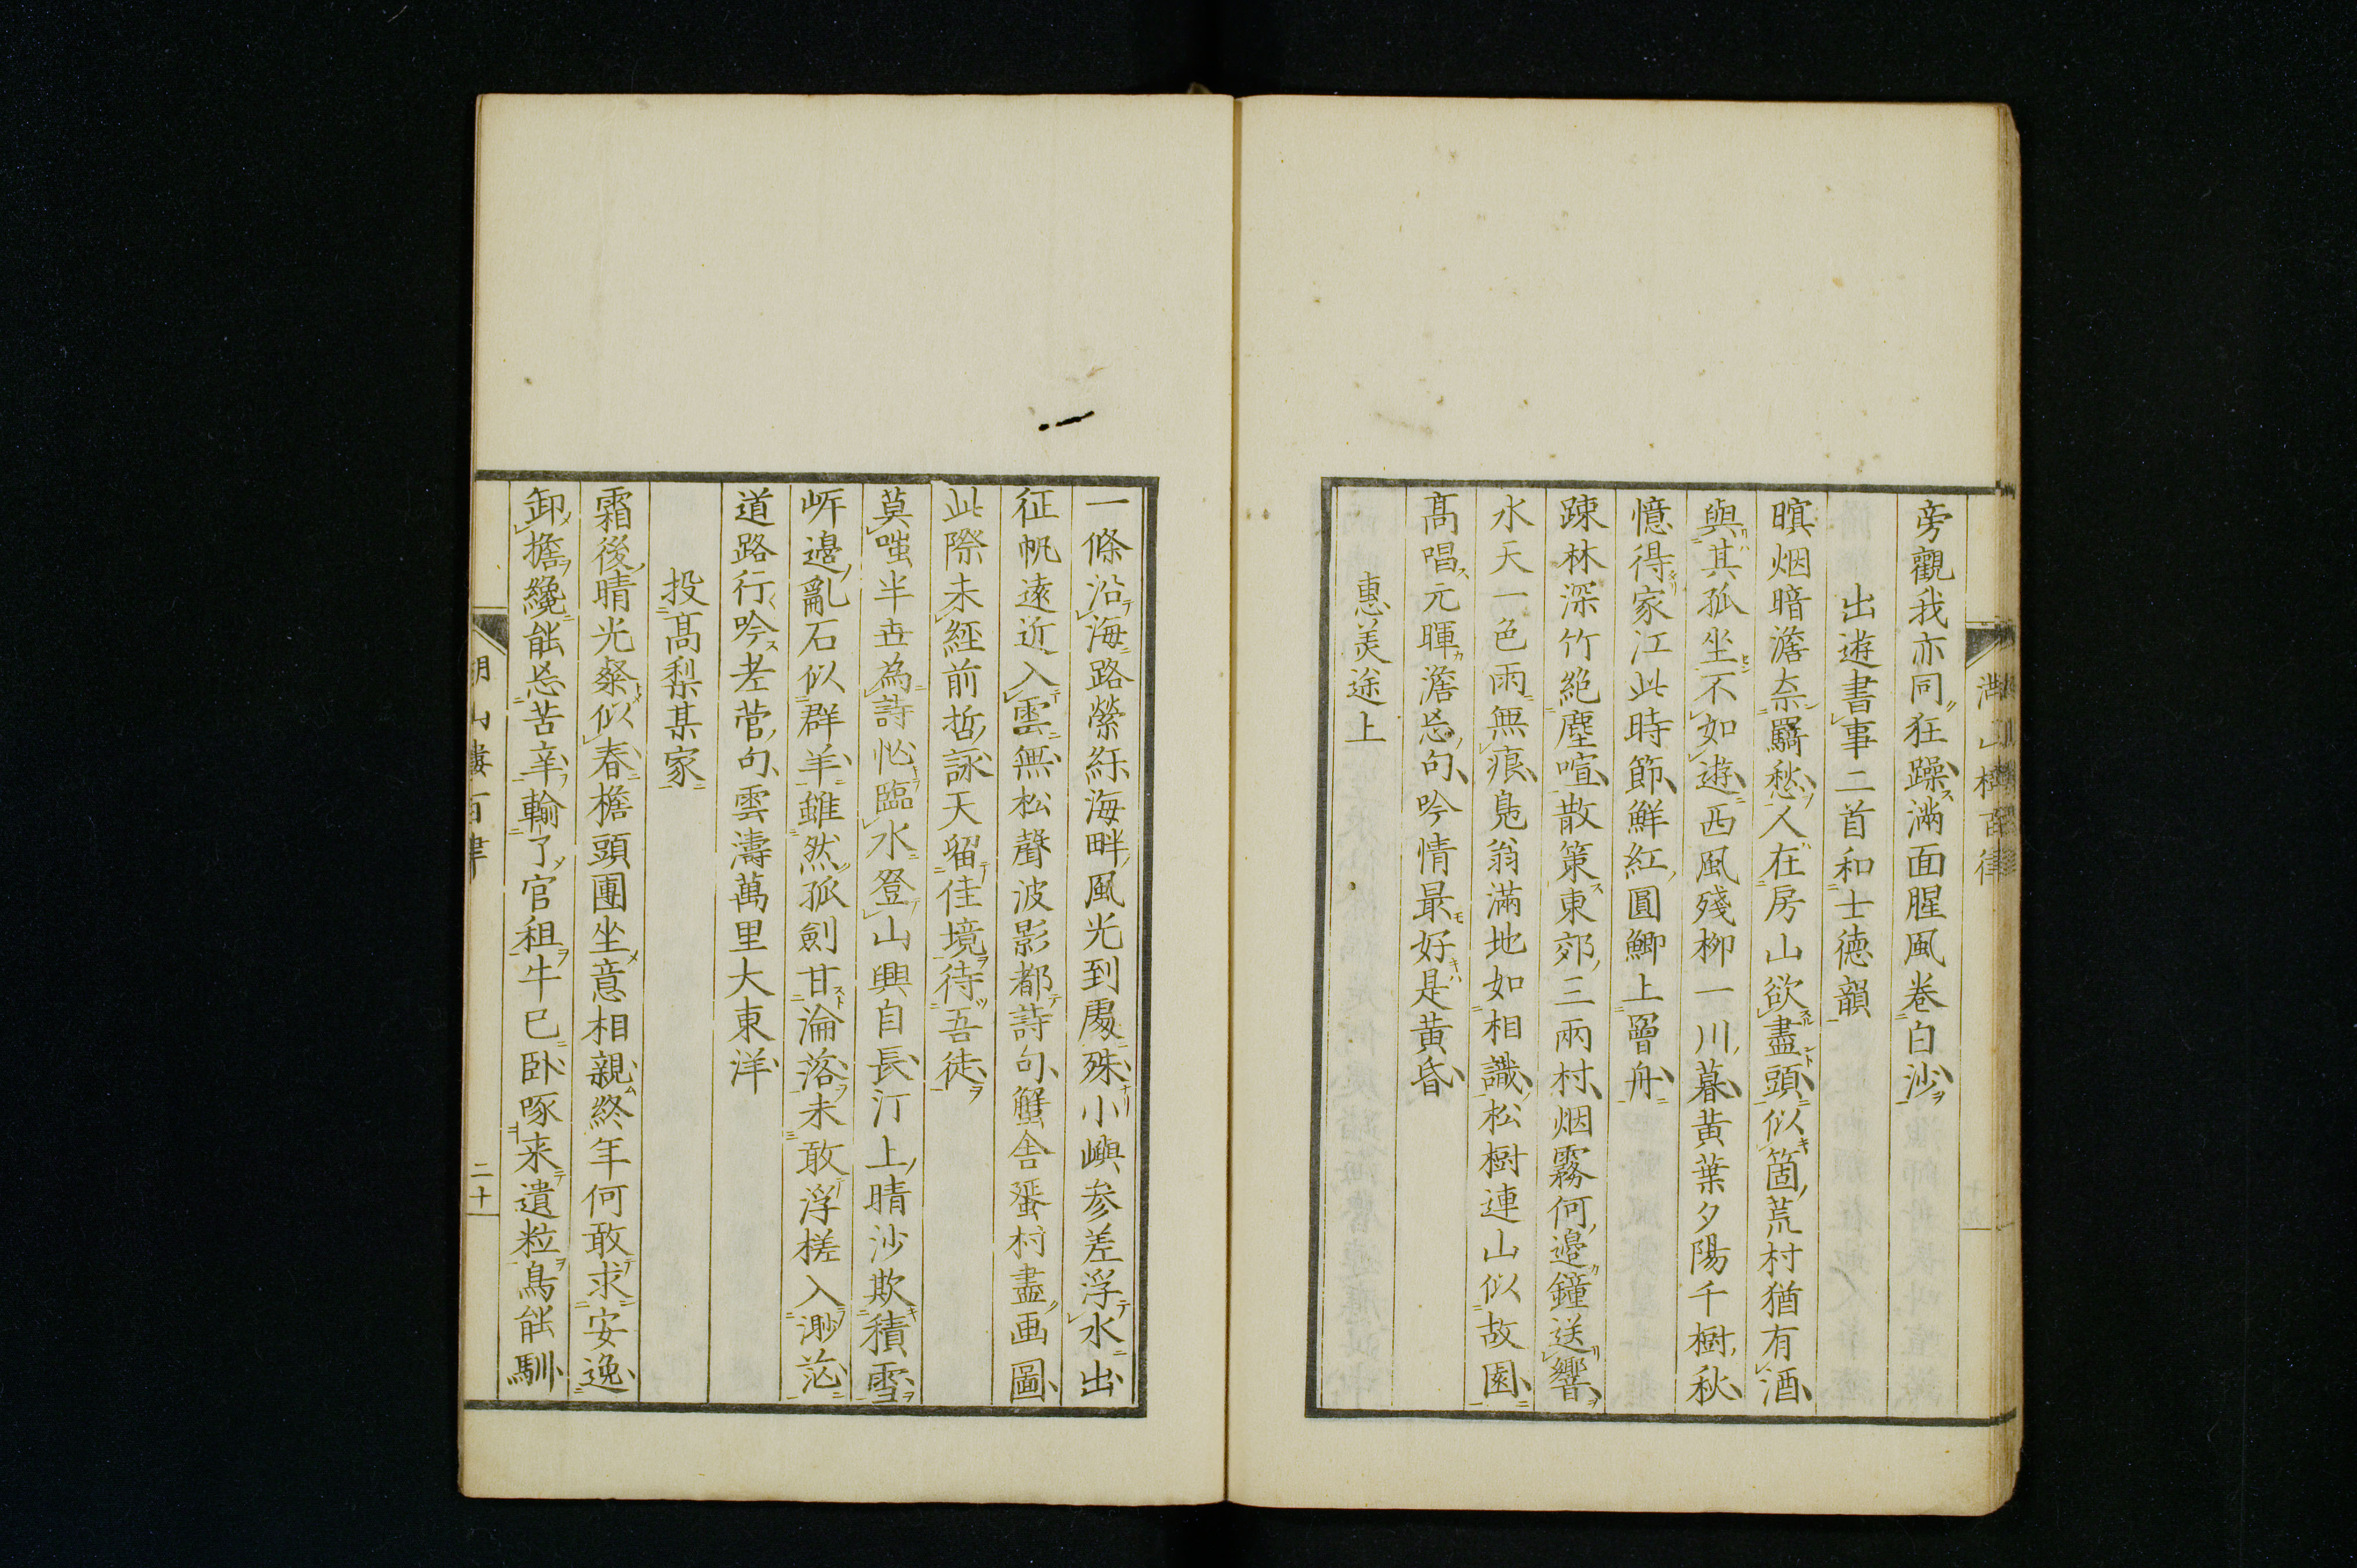 旁觀我亦同狂躁滿面腥風卷白沙
出遊書事二首和士德韻
暝烟暗澹奈羇愁人在房山欲盡頭似箇荒村猶有酒
與其孤坐不如遊西風殘柳一川暮黃葉夕陽千樹秋
憶得家江此時節鮮紅圓鯽上罾舟
踈林深竹絕塵喧散策東郊三兩村烟霧何邊鐘送響
水天一色雨無痕鳬翁滿地如相識松樹連山似故園
髙唱元暉澹忘句吟情最好是黃昏
惠美途上
一條沿海路縈紆海畔風光到處殊小嶼參差浮水出
征帆遠近入雲無松聲波影都詩句蟹舎蜑村盡画圖
此際未經前哲詠天留佳境待吾徒
莫嗤半世為詩忙臨水登山興自長汀上晴沙欺積雪
岍邊亂石似群羊雖然孤劍甘淪落未敢浮槎入渺茫
道路行吟老菅句雲濤萬里大東洋
投髙梨某家
霜後晴光粲似春檐頭團坐意相親終年何敢求安逸
卸擔纔能忘苦辛輸了官租牛已卧啄来遺粒鳥能馴
湖山樓百律
二十